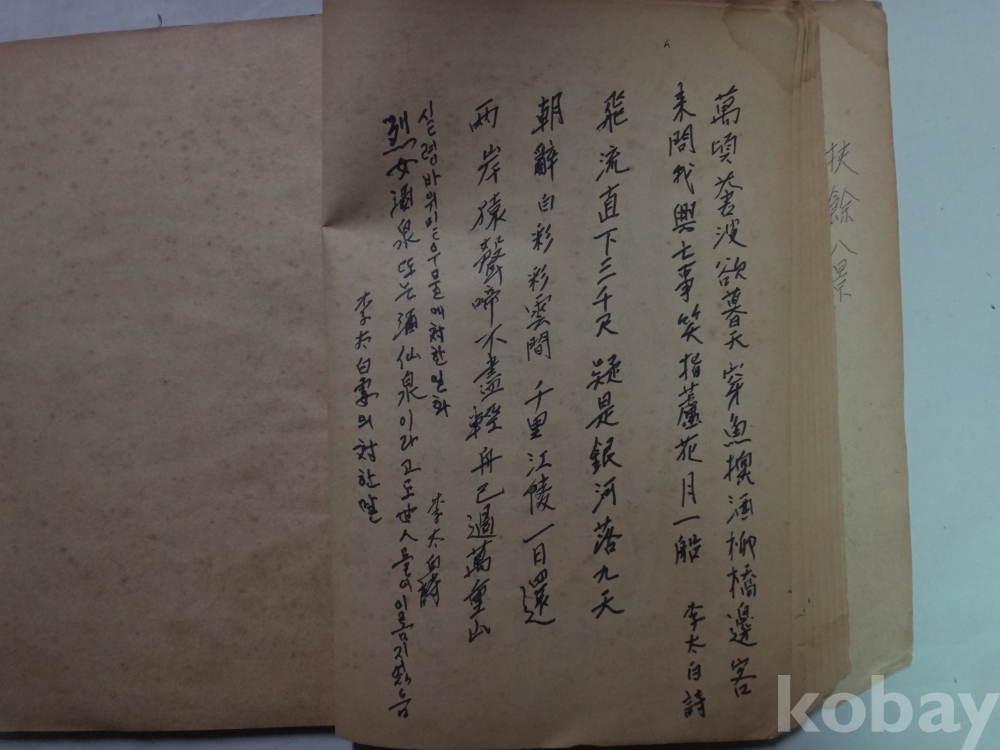 扶餘八景
萬頃蒼波欲暮天 穿魚換酒柳橋邊 客
來問我興亡事 笑指蘆花月一船 李太白詩
飛流直下三千尺 疑是銀河落九天
朝辭白彩彩雲間 千里江陵一日還
兩岸猿聲啼不盡 輕舟已過萬重山
실령바위밑우물에対한일화 李太白詩
烈女酒泉또는酒仙泉이라고도世人들이이름지었슴
李太白雲의対한말
kobay